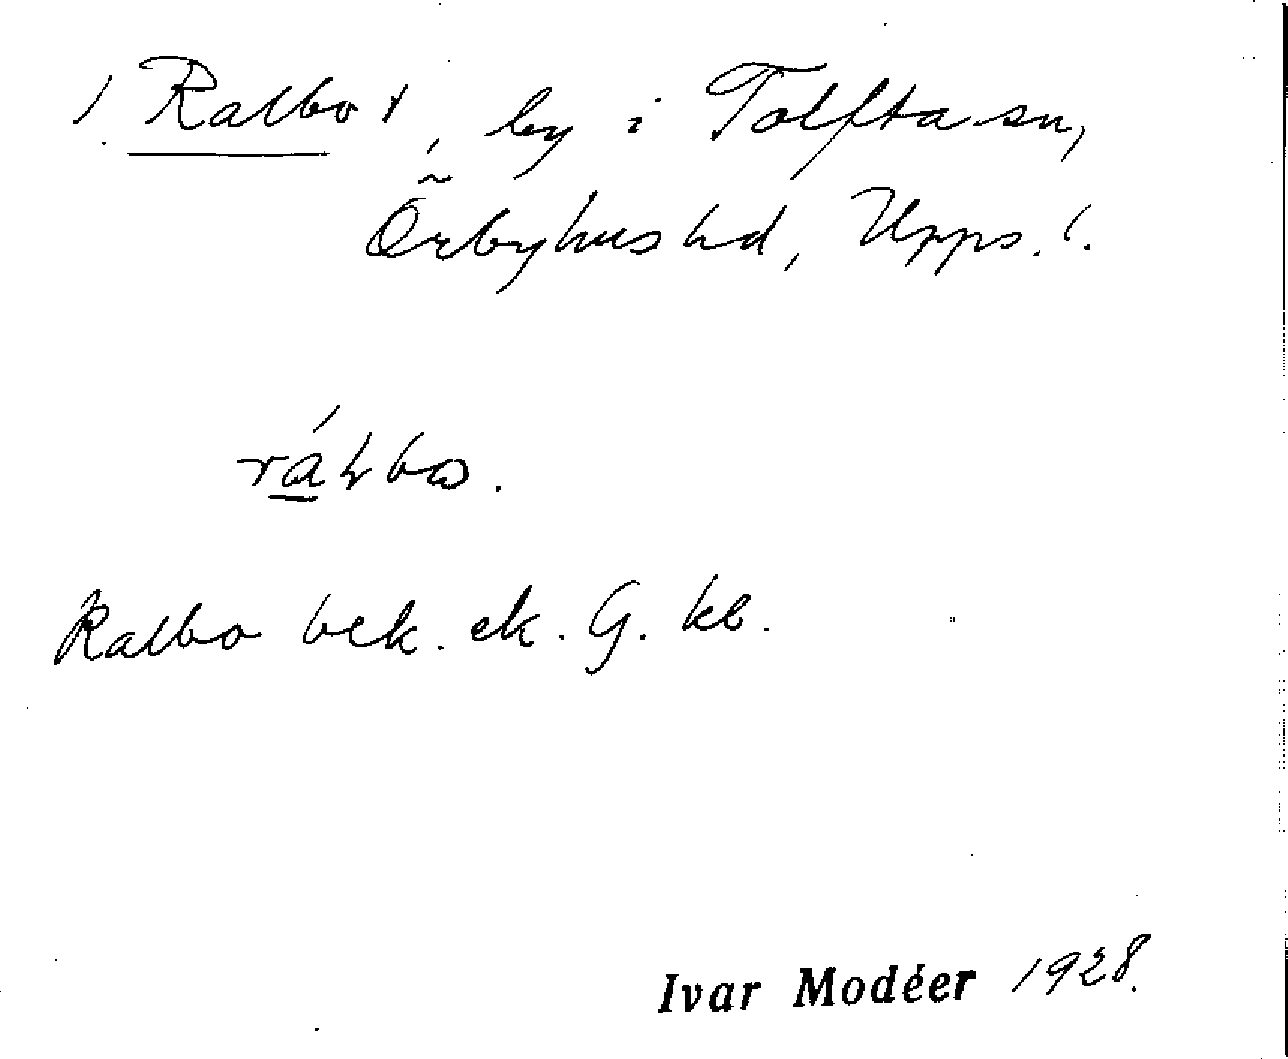 Ralbo, by i Tolfta sn,
Örbyhus hd, Upps. l.
Ralbo bek. ek. G. kb.
Ivar Modéer 1928.